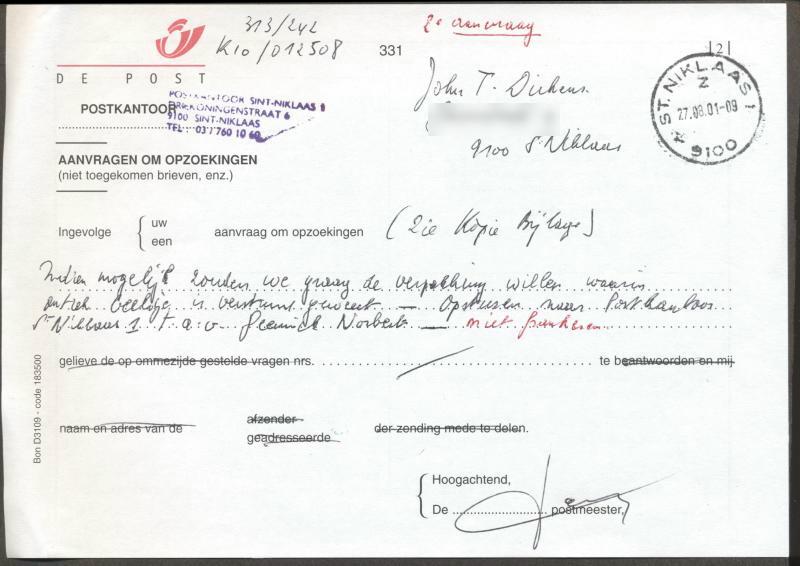 313/242
K10/012508
331
2e aanvraag
|2|
DE POST
POSTKANTOOR
POSTKANTOOR SINT-NIKLAAS 1
DRIEKONINGENSTRAAT 6
9100 SINT-NIKLAAS
TEL. 03/760 10 60
John T. Dickens
9100 St Niklaas
ST. NIKLAAS 1
Z
27.08.01-09
9100
AANVRAGEN OM OPZOEKINGEN
(niet toegekomen brieven, enz.)
Ingevolge { uw een aanvraag om opzoekingen (Zie Kopie Bijlage)
Indien mogelijk zouden we graag de verpakking willen waarin
is verstuurd geweest — Opsturen naar Postkantoor
St Niklaas 1 t.a.v. Norbert — niet frankeren
gelieve de op ommezijde gestelde vragen nrs. te beantwoorden en mij
naam en adres van de afzender geadresseerde der zending mede te delen.
Hoogachtend,
De postmeester,
Bon D3109 - code 183500